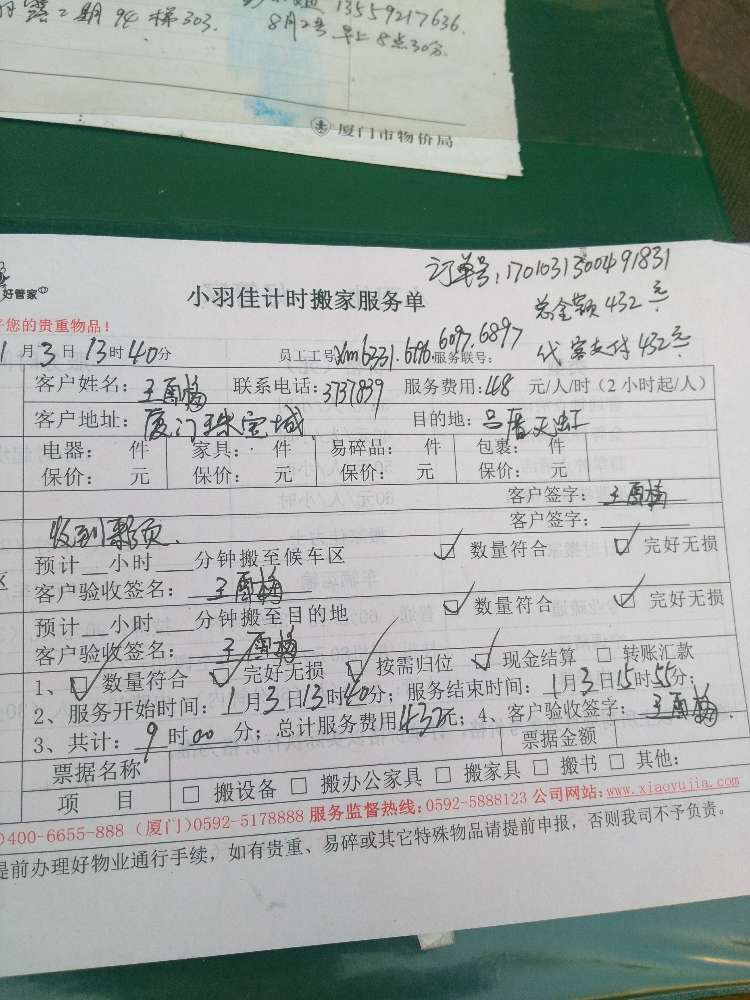 期94梯303.
13559217636.
8月2号早上8点30分.
厦门市物价局
订单号:1701031300491831
好管家
小羽佳计时搬家服务单
总金额432元
您的贵重物品!
代客支付432元
月3日13时40分
员工工号xm6331.6696.6097.6897服务联号:
客户姓名:王雪梅 联系电话:3737839 服务费用:48 元/人/时(2小时起/人)
客户地址:厦门珠宝城 目的地:吕厝天虹
电器: 件 家具: 件 易碎品: 件 包裹: 件
保价: 元 保价: 元 保价: 元 保价: 元
客户签字:王雪梅
客户签字:
预计 小时 分钟搬至候车区 ☑ 数量符合 ☑ 完好无损
客户验收签名:王雪梅
预计 小时 分钟搬至目的地 ☑ 数量符合 ☑ 完好无损
客户验收签名:王雪梅
1、☑ 数量符合 ☑ 完好无损 ☑ 按需归位 ☑ 现金结算 □ 转账汇款
2、服务开始时间:1月3日13时40分;服务结束时间:1月3日15时55分;
3、共计:9时00分;总计服务费用432元;4、客户验收签字:王雪梅.
票据名称 票据金额
项 目 □ 搬设备 □ 搬办公家具 □ 搬家具 □ 搬书 □ 其他:
)400-6655-888(厦门)0592-5178888 服务监督热线:0592-5888123 公司网站:www.xiaoyujia.com
提前办理好物业通行手续,如有贵重、易碎或其它特殊物品请提前申报,否则我司不予负责。